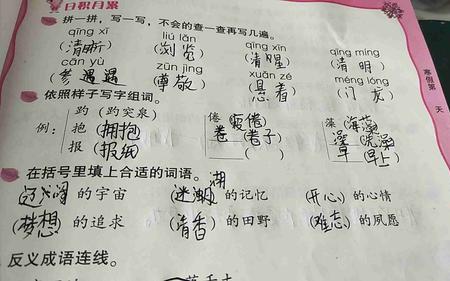 日积月累
拼一拼，写一写，不会的查一查再写几遍。
qīng xī liú lǎn qīng xǐn qīng míng
(清晰) (浏览) (清醒) (清明)
cān yù zūn jìng xuān zé méng lóng
(遇遇) (尊敬) (悬着) (门龙)
依照样子写字组词。
趵(趵突泉) 倦(疲倦) 藻(海藻)
例： 抱(拥抱) 卷(卷子) 澡(洗澡)
报(报纸) ( ) 早(早上)
在括号里填上合适的词语。
的宇宙 的记忆 (开心)的心情
(梦想)的追求 (清香)的田野 (难忘)的夙愿
反义成语连线。
寒假第 天